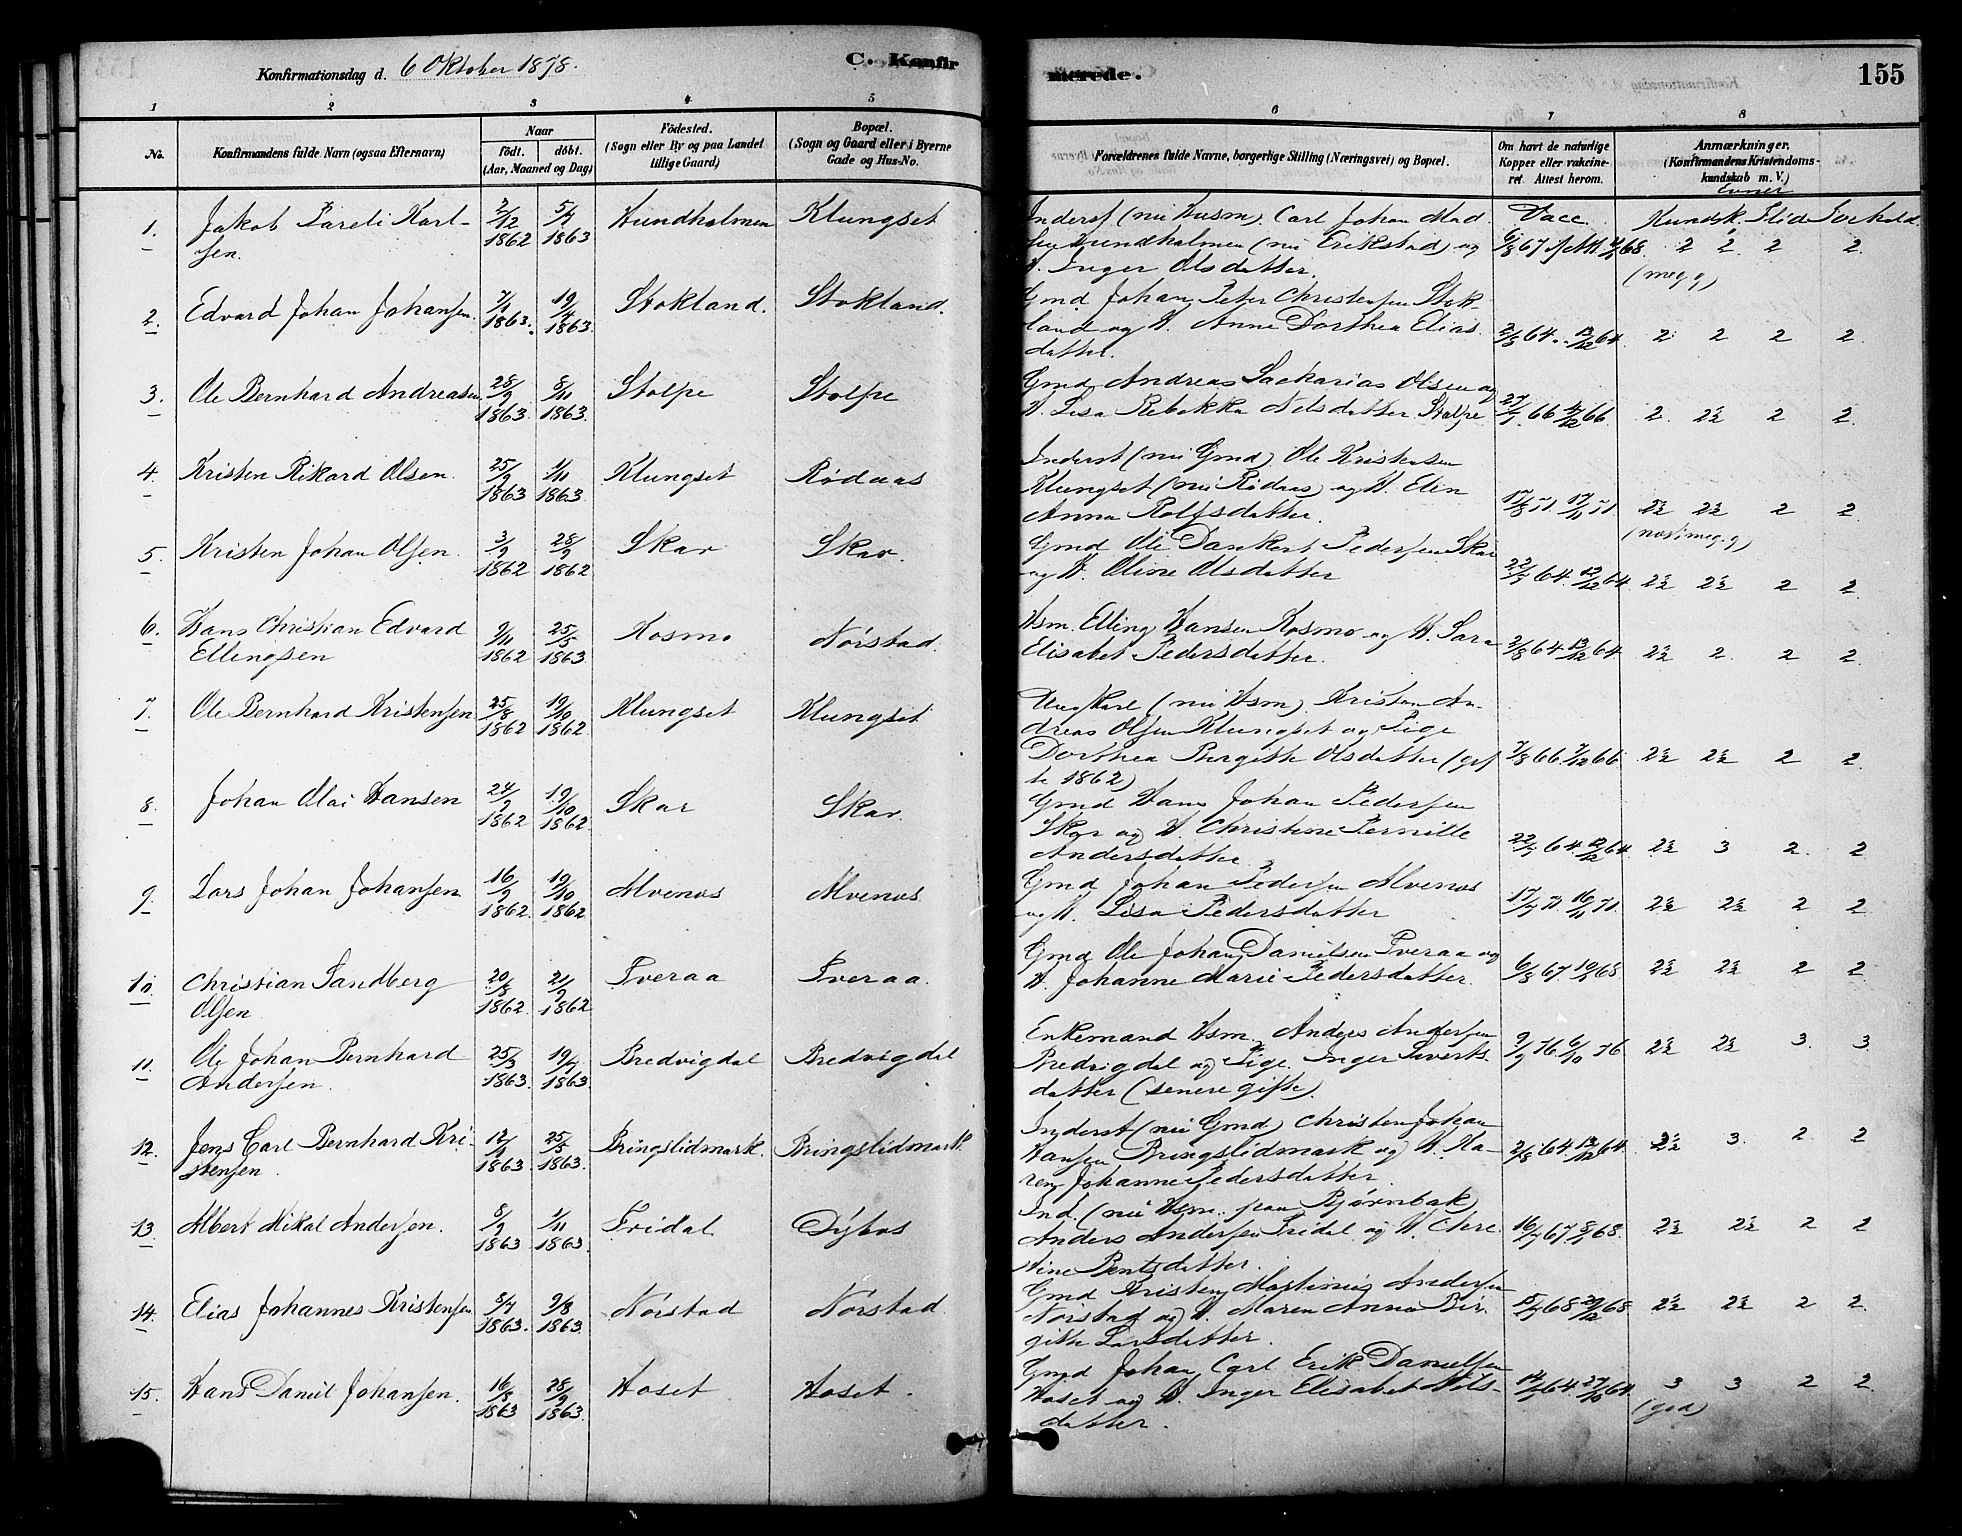 Konfirmationsdag d. 6 Oktober 1878.
C. Konfirmerede.
155
1 2 3 4 5 6 7 8
No.
Konfirmandens fulde Navn (ogsaa Efternavn)
Naar
födt. döbt.
(Aar, Maaned og Dag)
Födested.
(Sogn eller By og paa Landet
tillige Gaard)
Bopæl.
(Sogn og Gaard eller i Byerne
Gade og Hus-No.
Forældrenes fulde Navne, borgerlige Stilling (Næringsvei) og Bopæl.
Om havt de naturlige
Kopper eller vakcine-
ret. Attest herom.
Anmærkninger.
(Konfirmandens Kristendoms-
kundskab m. V.)
Evner
Vacc. Kundsk. Flid Forhold.
1. Jakob Pareli Karl-
sen. 2/12 1862 5/7 1863 Hundholmen Klungset
Inderst (nu Husm) Carl Johan Mad-
sen Hundholmen (nu Erikstad) og
H. Inger Olsdatter. 6/8 67 2 2 2 2
(meg. g)
2. Edvard Johan Johansen. 7/1 1863. 19/4 1863. Stokland. Stokland.
Gmd Johan Peter Christensen Stok-
land og H. Anne Dorthea Elias-
datter. 2/8 64. 13/12 64. 2 2 2 2
3. Ole Bernhard Andreasen 28/9 1863. 8/11 1863. Stolpe Stolpe
Gmd Andreas Sackarias Olsen og
H. Lisa Rebekka Nelsdatter Stolpe 27/7 66 66. 2. 2½ 2 2.
4. Kristen Rikard Olsen. 25/9 1863 1/11 1863. Klungset Rödaas
Inderst (nu Gmd) Ole Kristensen
Klungset (nu Rödaas) og H. Elen
Anna Rolfsdatter. 17/8 71. 17/11 71. 2½ 2½ 2 2.
(næst meg. g)
5. Kristen Johan Olsen. 3/9 1862 28/9 1862 Skar Skar.
Gmd Ole Dankert Pedersen Skar
og H. Oline Olsdatter 22/7 64. 12/12 64 2½ 2½ 2 2.
6. Hans Christian Edvard
Ellingsen 9/11 1862 25/5 1863. Kosmo Nörstad.
Hsm. Elling Hansen Kosmo og H. Sara
Elisabet Pedersdatter. 2/8 64 13/12 64. 2½ 2. 2 2.
7. Ole Bernhard Kristensen 25/8 1862 19/10 1862. Klungset Klungset
Ungkarl (nu Hsm) Kristen An-
dreas Olsen Klungset og Pige
Dorthea Birgitte Olsdatter (gif-
te 1862) 7/8 66. 7/12 66 2½ 2½ 2 2.
8. Johan Olai Hansen 24/9 1862 19/10 1862. Skar Skar.
Gmd Hans Johan Pedersen
Skar og H. Christine Pernille
Andersdatter. 22/7 64. 12/12 64. 2½ 3 2. 2
9. Lars Johan Johansen 16/9 1862. 19/10 1862. Alvenes Alvenes
Gmd Johan Pedersen Alvenes
og H. Lisa Pedersdatter 17/7 71. 16/11 71. 2½ 2½ 2 2
10. Christian Sandberg
Olsen 20/8 1862. 21/9 1862 Tveraa Tveraa.
Gmd Ole Johan Danielsen Tveraa og
H. Johanne Marie Pedersdatter. 6/8 67. 68 2½ 2½ 2 2
11. Ole Johan Bernhard
Andersen. 25/3 1863. 19/4 1863. Bredvigdal Bredvigdal
Enkemand Hsm. Anders Andersen
Bredvigdal og Pige Inger Siverts-
datter (senere gifte). 9/9 76 6/10 76 2½ 2½ 3. 3.
12. Jens Carl Bernhard Kri-
stensen. 1863. 25/5 1863. Bringslidmark. Bringslidmark.
Inderst (nu Gmd) Christen Johan
Hansen Bringslidmark og H. Ka-
ren Johanne Pedersdatter. 2/8 64. 13/12 64. 2½ 3. 2. 2
13. Albert Mikal Andersen. 8/9 1863 1/11 1863. Fridal
Ind. (nu Hsm. paa Bjørnbak)
Anders Andersen Fridal og H. Chri-
stine Bentsdatter. 16/7 67. 68. 2½ 2½ 2 2
14. Elias Johannes Kristensen 5/7 1863. 9/8 1863. Nörstad Nörstad.
Gmd Kristen Martinus Andersen
Nörstad og H. Maren Anna Bir-
gitte Larsdatter. 68 68. 2½ 2½ 2 2.
15. Hans Daniel Johansen. 16/8 1863 28/9 1863. Hoset. Hoset.
Gmd Johan Carl Erik Danielsen
Hoset og H. Inger Elisabet Nils-
datter. 64. 64. 3 3 2 2.
(god)